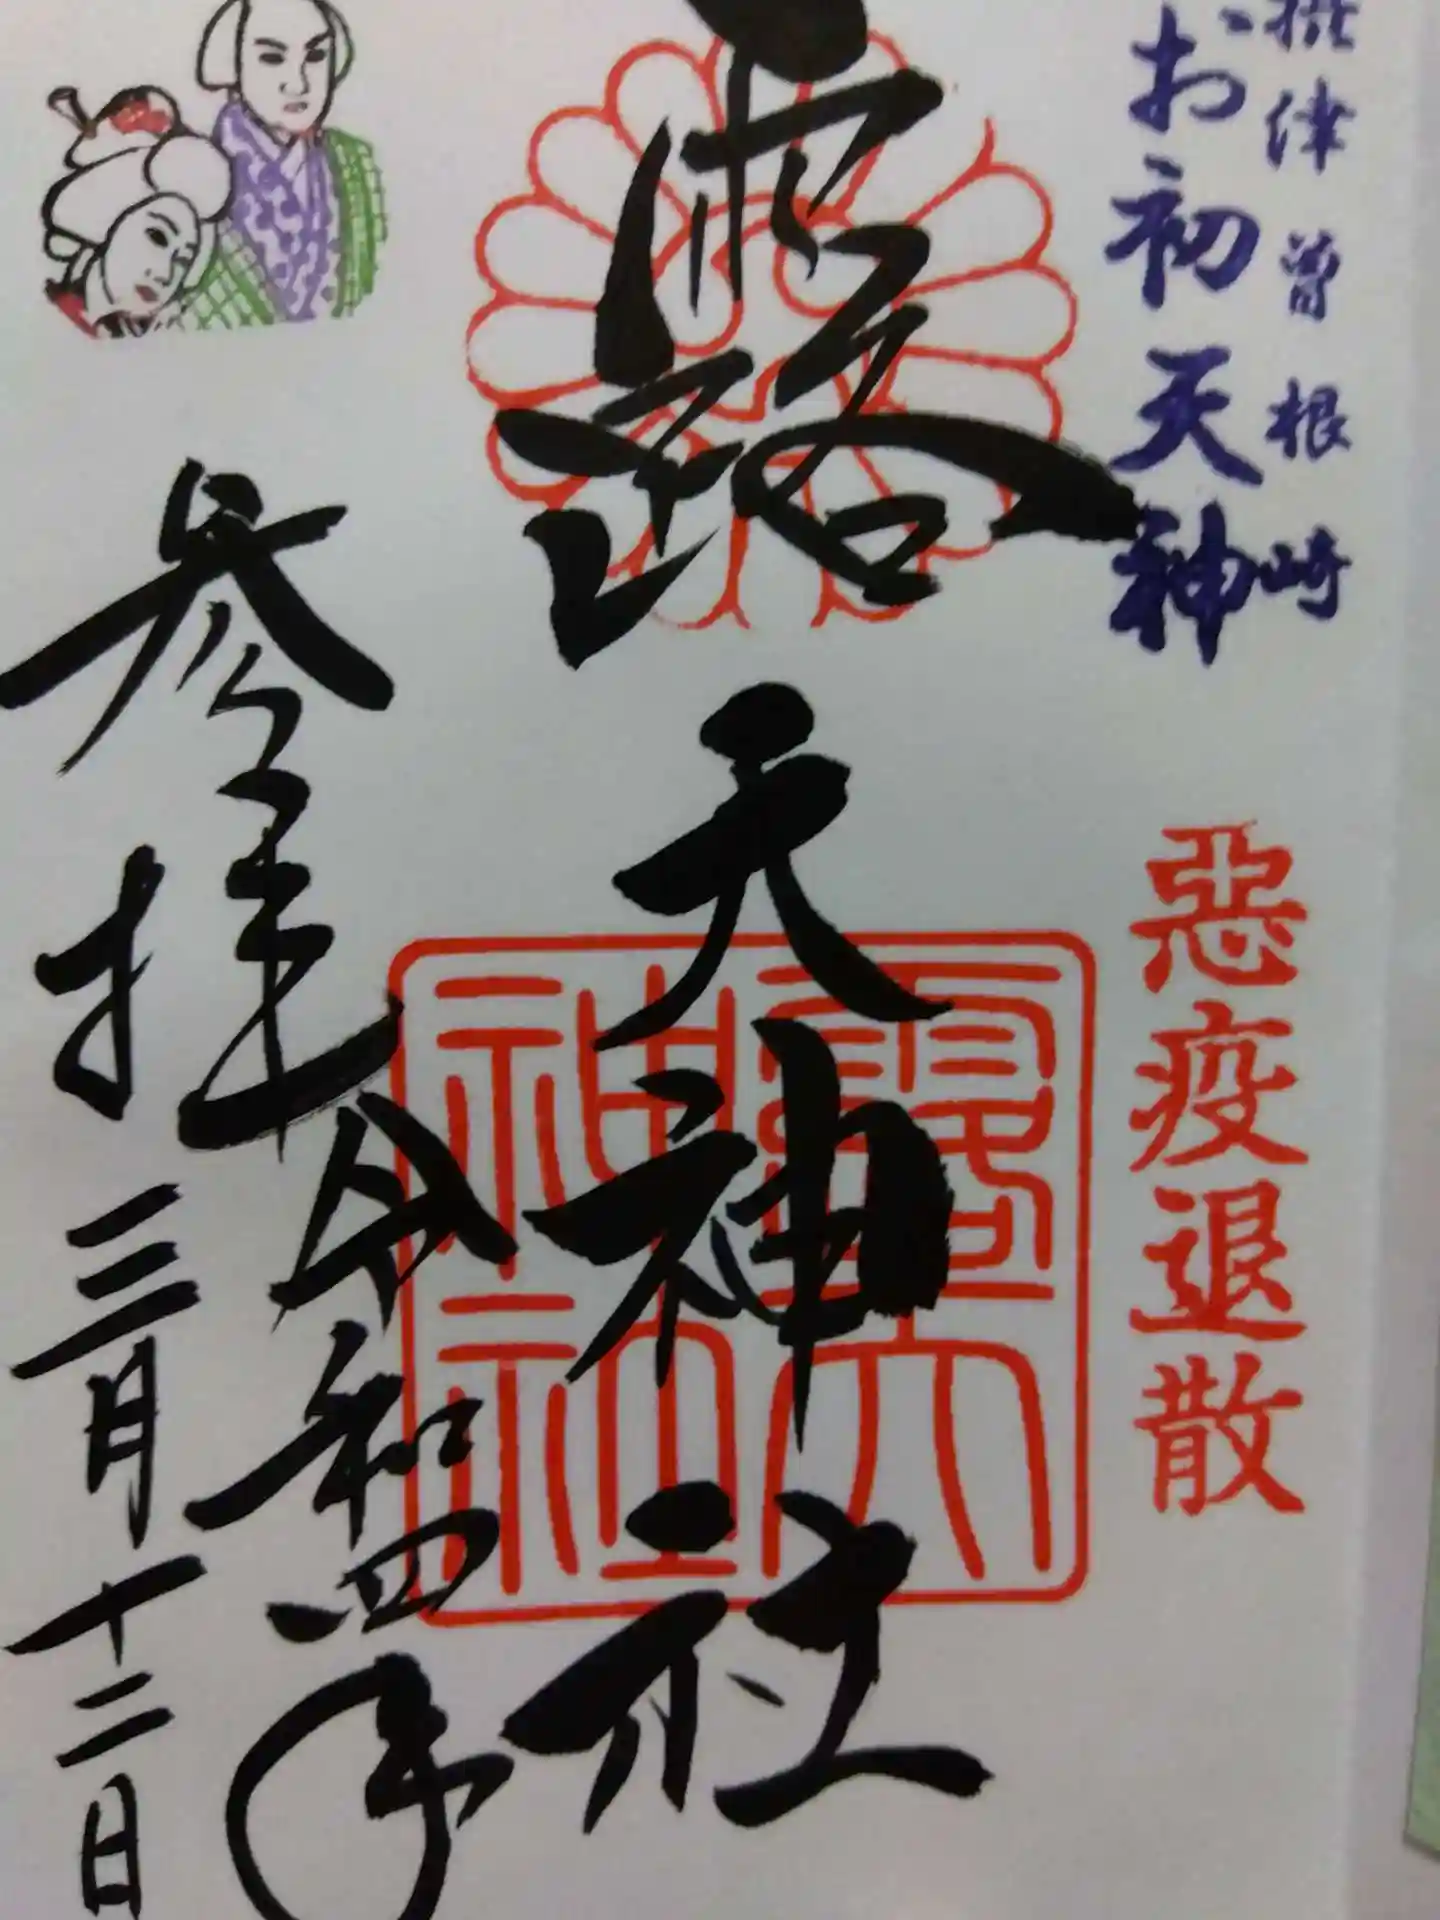 摂津曽根崎
お初天神
悪疫退散
露天神社
露天
神社
参拝
令和四年
三月十二日